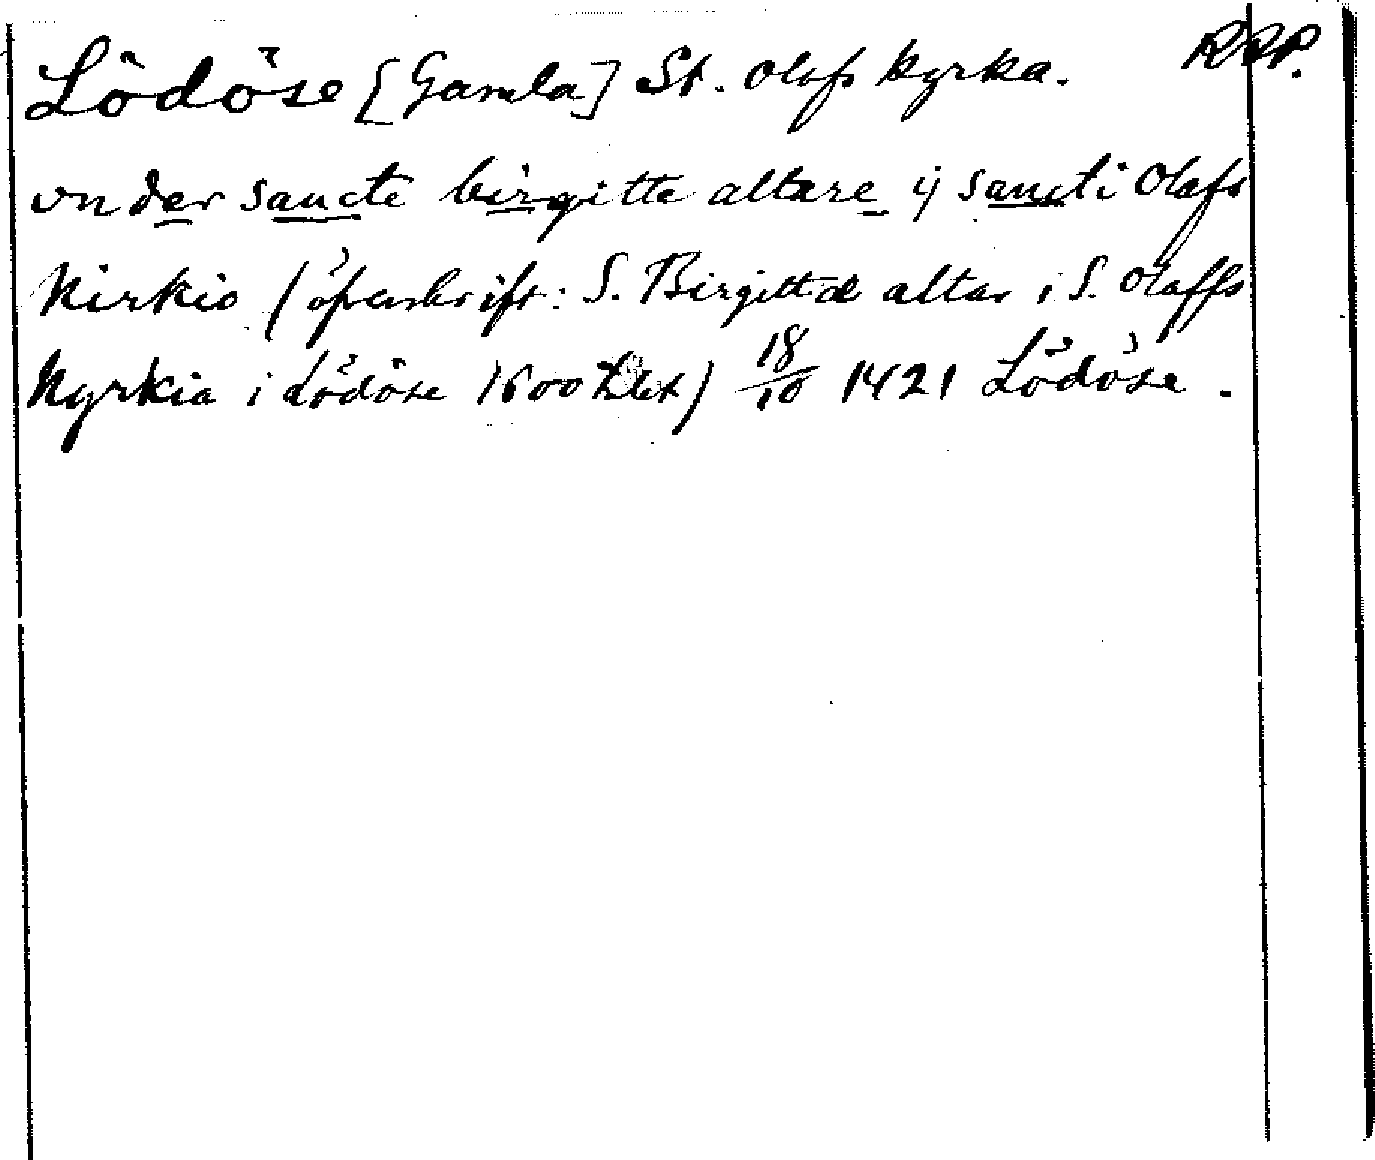 Lödöse [Gamla] St. Olofs kyrka. RPP.
vnder sancte birgitte altare ij sancti Olafs
kirkio (öfverskrift: S. Birgittæ altar i S. Olaffs
kyrkia i Lödöse 1600 talet) 18/10 1421 Lödöse.